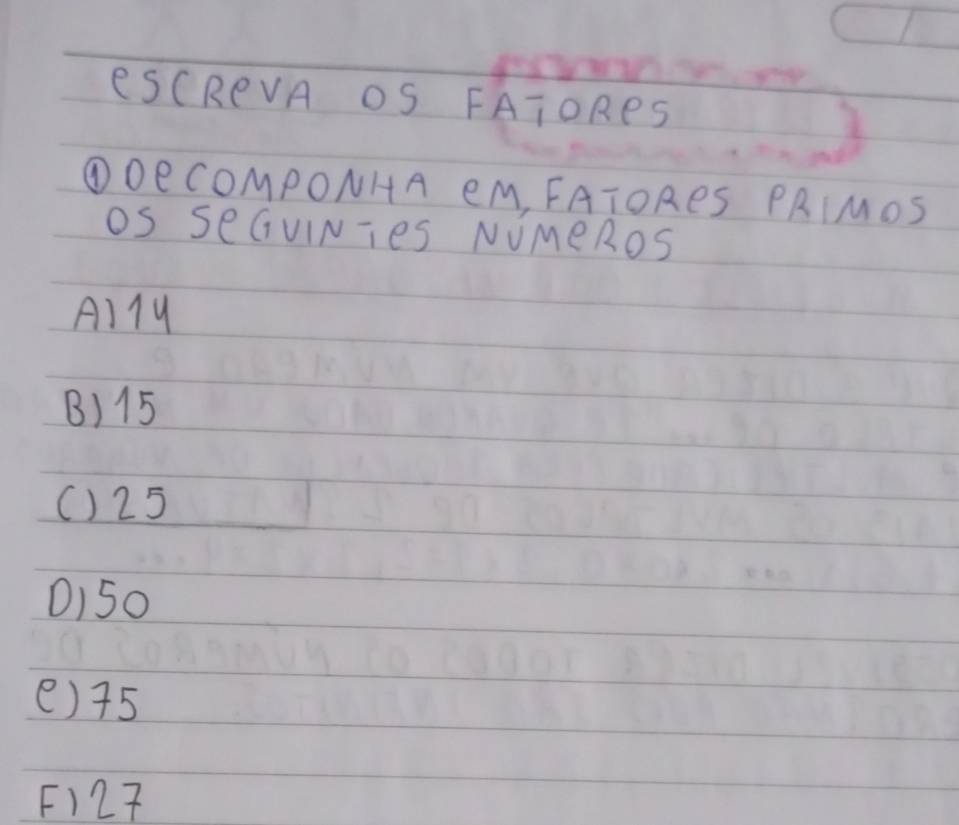 esCReVA OS FATOReS
① DeCOMPONHA eM, FATOReS PRIMOS
OS SeGUINTeS NUMeROS
A) 14
B) 15
C) 25
D) 50
e) 75
F) 27